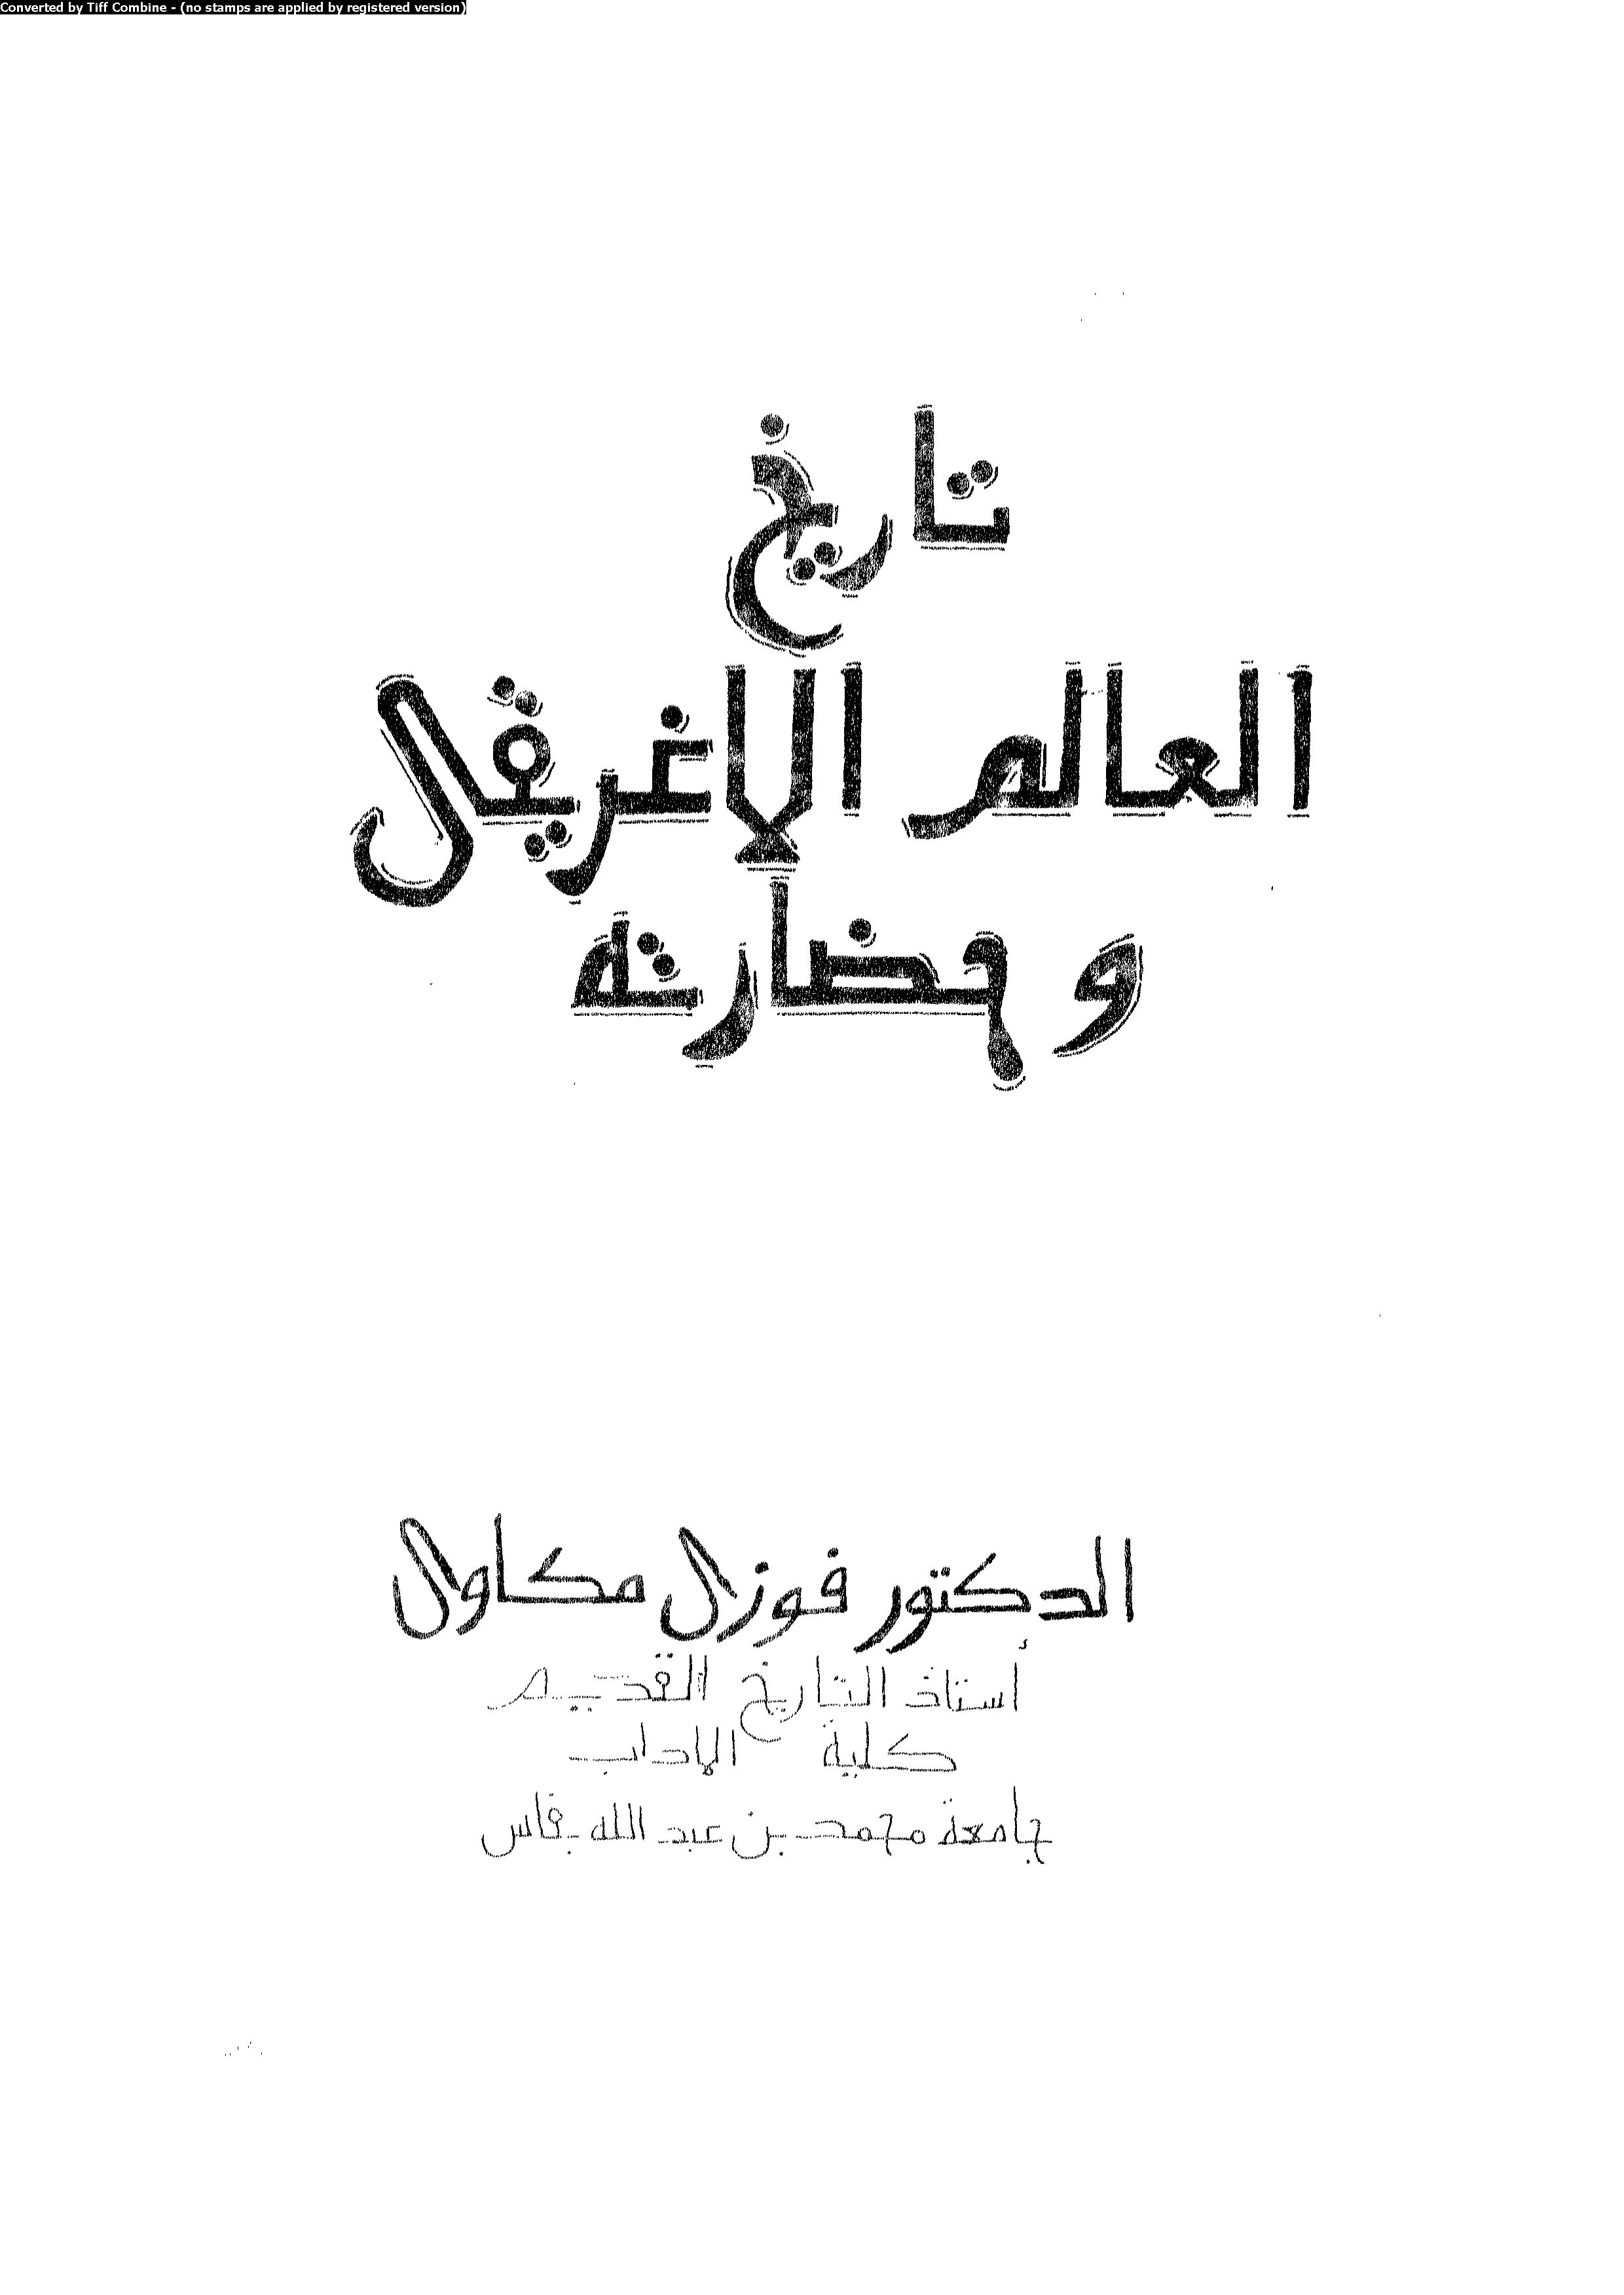 Converted by Tiff Combine - (no stamps are applied by registered version)
تاريخ
العالم الاغريقى
وحضارته
الدكتور فوزى مكاوى
أستاذ التاريخ القديم
كلية الاداب
جامعة محمد بن عبد الله بفاس